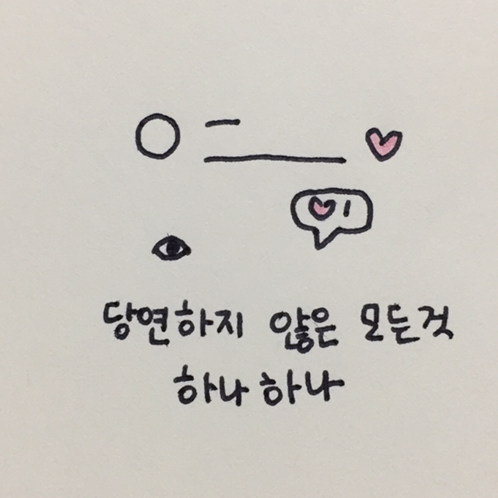 당연하지 않은 모든것
하나하나